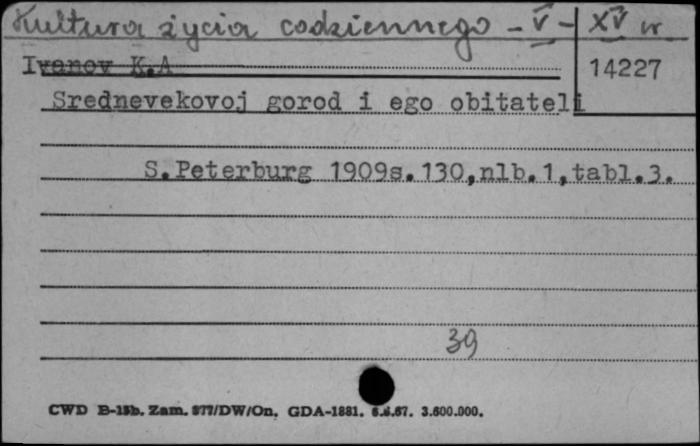 Kultura życia codziennego - V - XV w
Ivanov K.A
14227
Srednevekovoj gorod i ego obitateli
S.Peterburg 1909s.130,nlb.1,tabl.3.
39
CWD B-15b. Zam. 877/DW/On. GDA-1881. 6.6.67. 3.600.000.